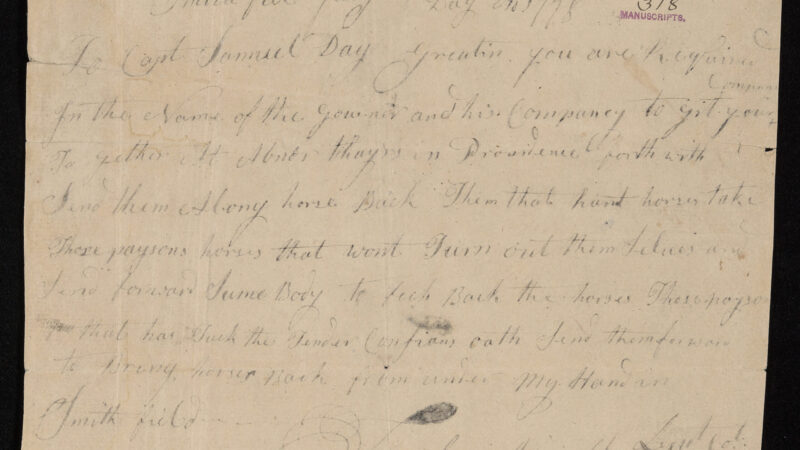 Day 178
318
MANUSCRIPTS.
To Capt Samuel Day Greatin you are Required
In the Name of the Gouner and his Company to git your
Company
To gether At Abner thayrs in Providence forth with
Send them Along horse Back Them that hant horses take
Those paysons horses that wont Turn out them Selves and
Send forward Sume Body to fech Back the horses Those payson
that has Tuck the Tender Confians oath Send them forward
to Bring horses Back from under My Hand in
Smith field
Lieut Col